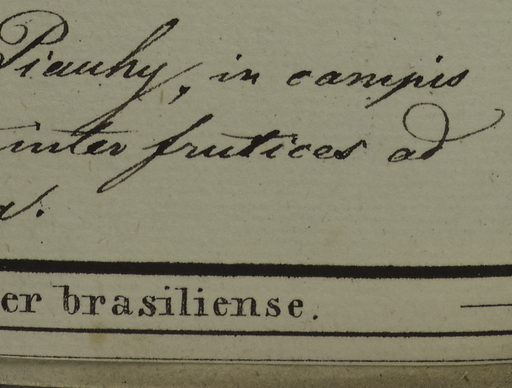 Piauhy, in campis
inter frutices ad
er brasiliense.